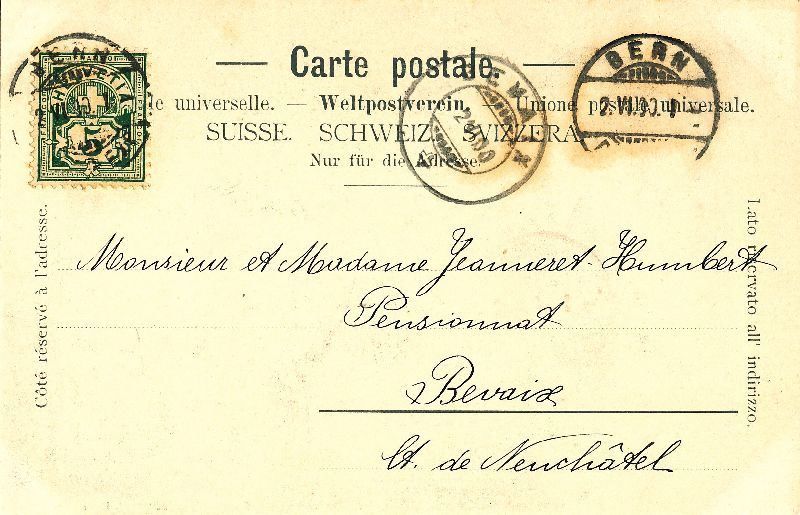 Carte postale.
le universelle. — Weltpostverein. — Unione postale universale.
SUISSE. SCHWEIZ. SVIZZERA
Nur für die Adresse.
BERN
2.VII.00.
5
Côté réservé à l'adresse.
Lato riservato all' indirizzo.
Monsieur et Madame Jeanneret-Humbert
Pensionnat
Bevaix
Ct. de Neuchâtel